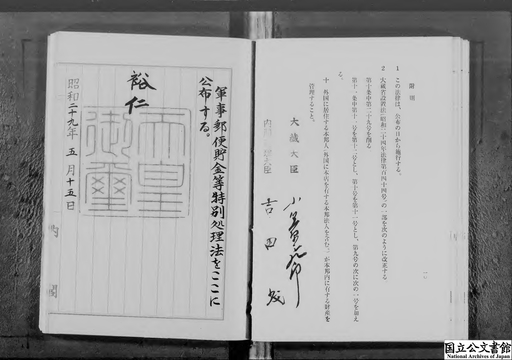 附則
1 この法律は、公布の日から施行する。
2 大蔵省設置法(昭和二十四年法律第百四十四号)の一部を次のように改正する。
第十条中第二十九号を削る
第十一条中第十一号を第十二号とし、第十号を第十一号とし、第九号の次に次の一号を加える。
十 外国に居住する本邦人(外国に本店を有する本邦法人を含む。)が本邦内に有する財産を管理すること。
大蔵大臣
吉田茂
軍事郵便貯金等特別処理法をここに
公布する。
裕仁
天皇御璽
昭和二十九年五月十五日
内閣
国立公文書館
National Archives of Japan